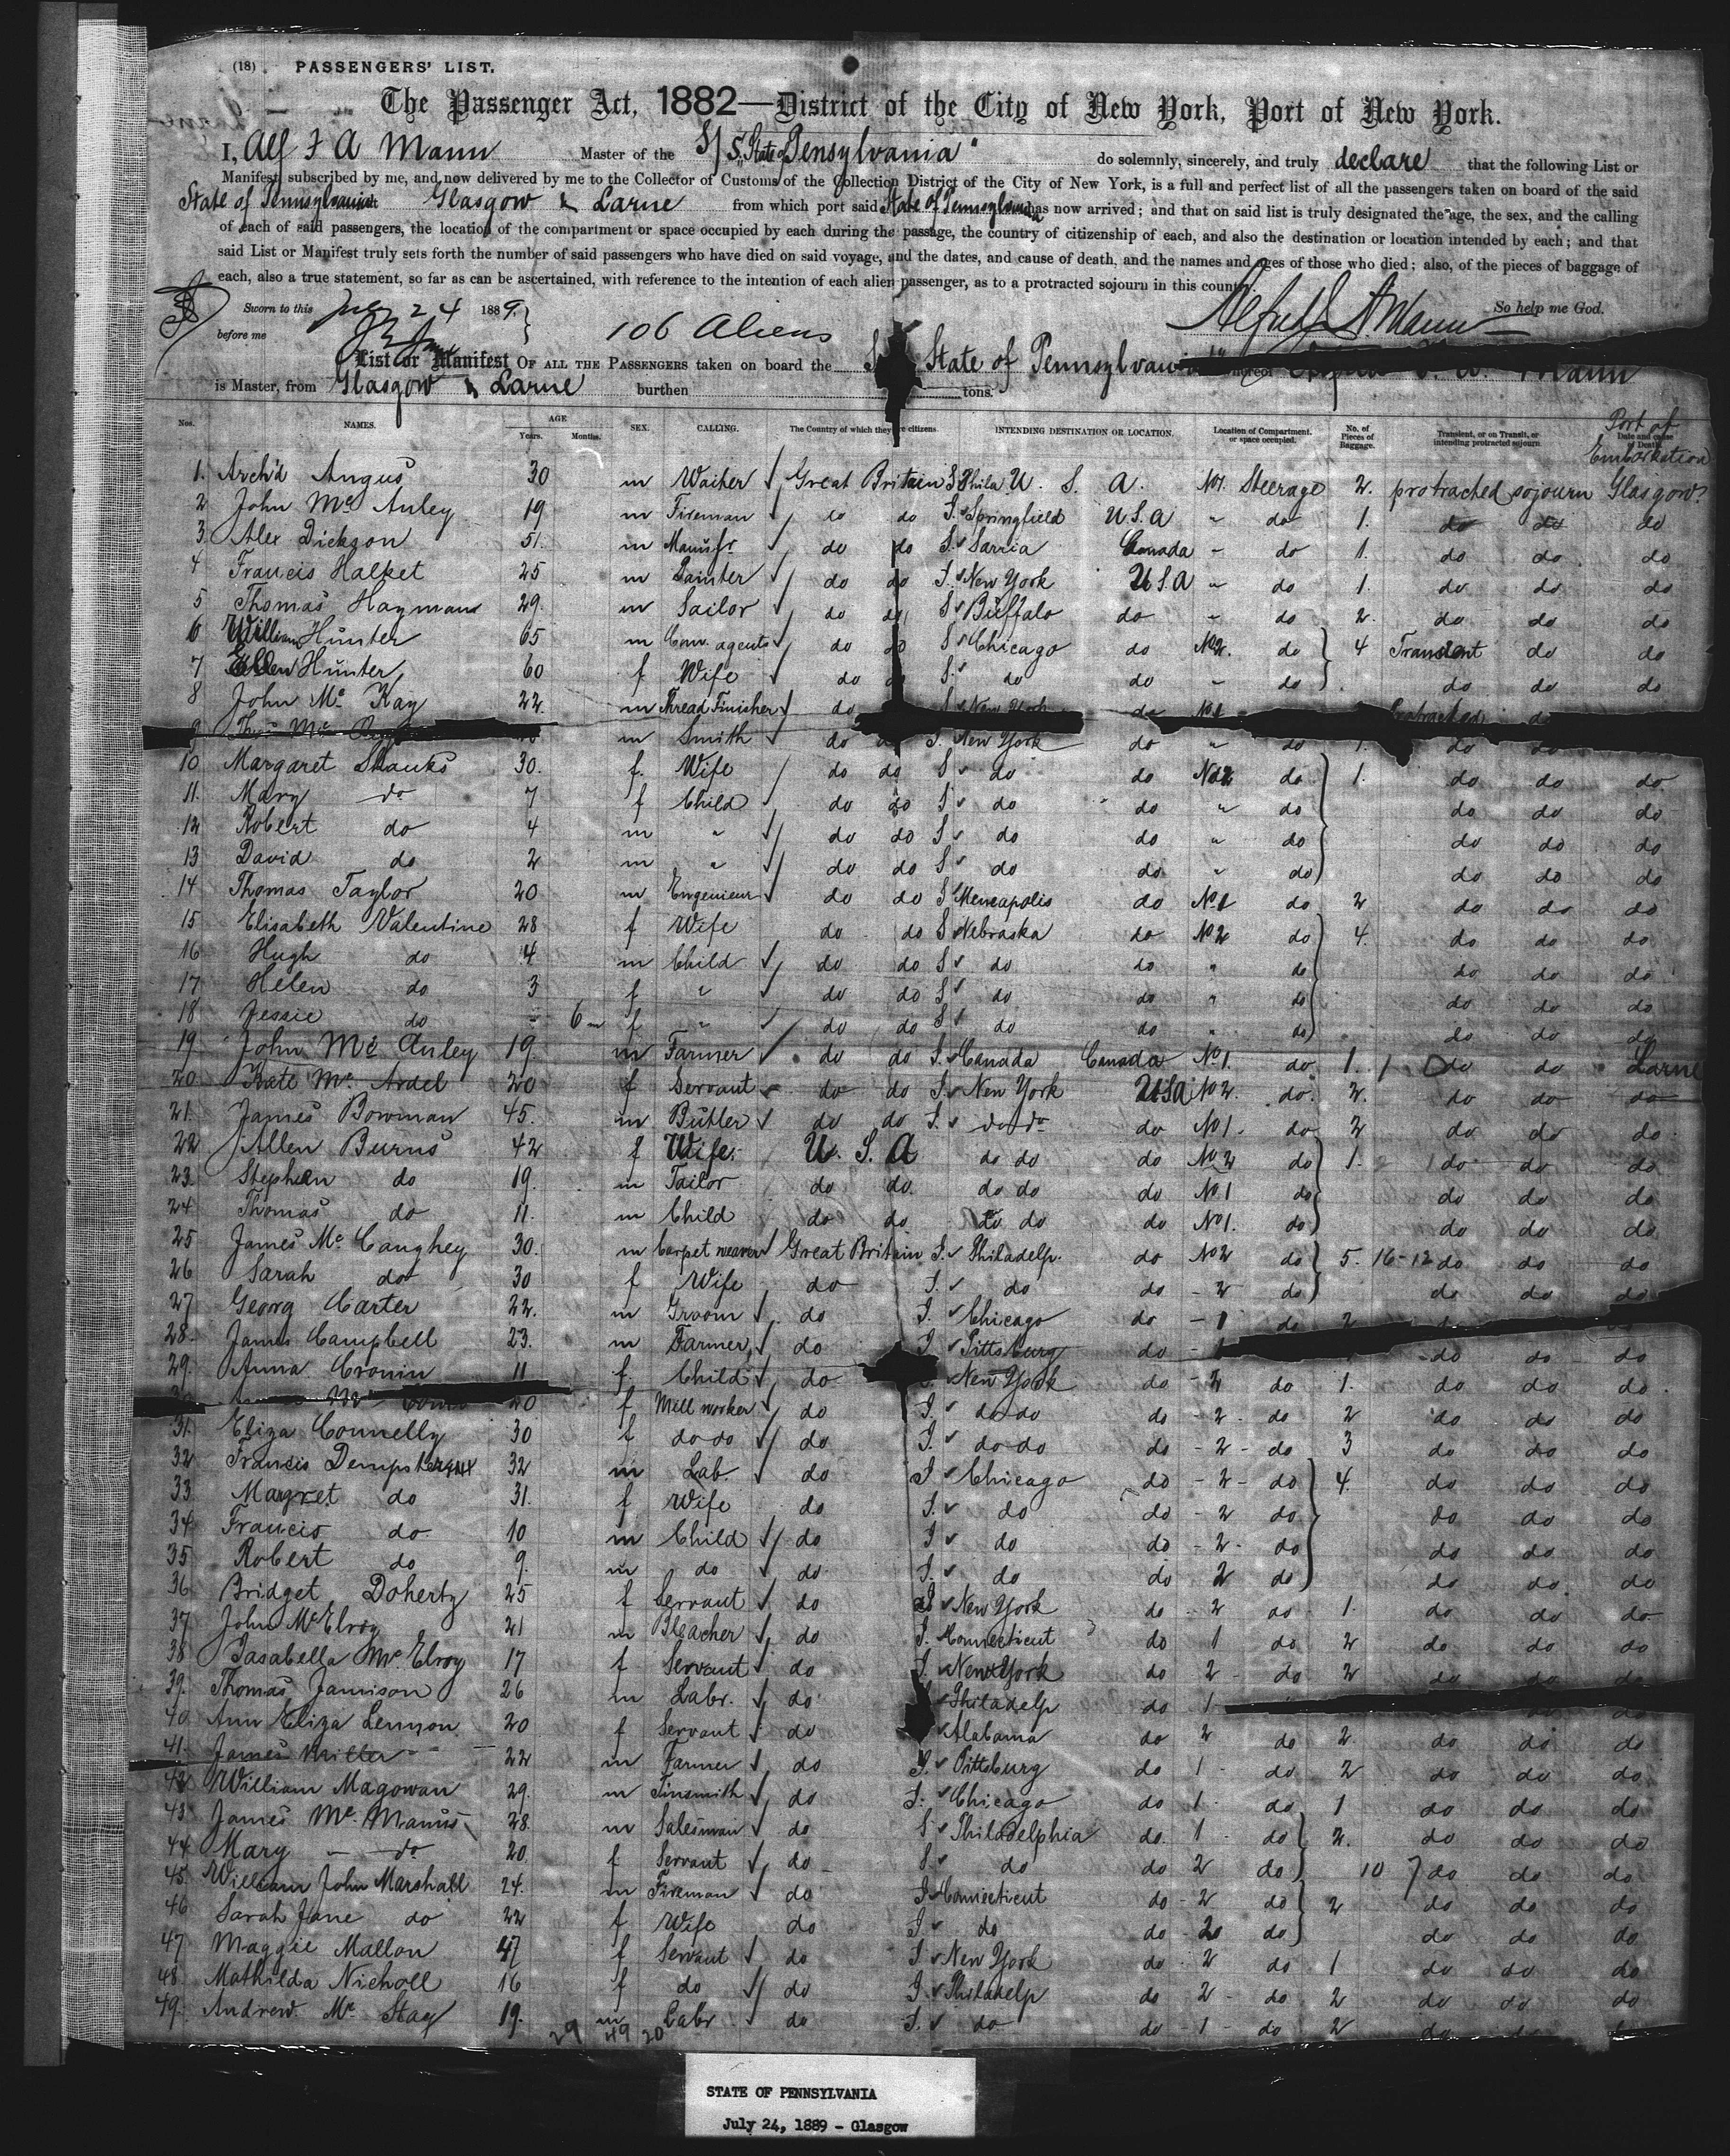 (18) PASSENGERS' LIST.
The Passenger Act, 1882—District of the City of New York, Port of New York.
I, Alf F A Mann Master of the S/S "State of Pensylvania" do solemnly, sincerely, and truly declare that the following List or
Manifest, subscribed by me, and now delivered by me to the Collector of Customs of the Collection District of the City of New York, is a full and perfect list of all the passengers taken on board of the said
State of Pennsylvania Glasgow & Larne from which port said State of Pennsylvania has now arrived; and that on said list is truly designated the age, the sex, and the calling
of each of said passengers, the location of the compartment or space occupied by each during the passage, the country of citizenship of each, and also the destination or location intended by each; and that
said List or Manifest truly sets forth the number of said passengers who have died on said voyage, and the dates, and cause of death, and the names and ages of those who died; also, of the pieces of baggage of
each, also a true statement, so far as can be ascertained, with reference to the intention of each alien passenger, as to a protracted sojourn in this country.
Sworn to this July 24 1889. So help me God.
before me 106 Aliens Alfred A Mann
List or Manifest OF ALL THE PASSENGERS taken on board the State of Pennsylvania whereof Mann
is Master, from Glasgow & Larne burthen tons.
Nos. NAMES. AGE Years. Months. SEX. CALLING. The Country of which they are citizens. INTENDING DESTINATION OR LOCATION. Location of Compartment. or space occupied. No. of Pieces of Baggage. Transient, or on Transit, or intending protracted sojourn Date and cause of Death. Port of Embarkation
1. Arch'd Angus 30 m Waiter Great Britain S Phila U. S. A. No 1. Steerage 2. protracted sojourn Glasgow
2 John Mc Auley 19 m Fireman do do S. Springfield U.S.A " do 1. do do do
3. Alex Dickson 51. m Manufr do do S. Sarria Canada " do 1. do do do
4 Francis Halket 25 m Painter do do S. New York U.S.A " do 1. do do do
5 Thomas Haymans 29. m Sailor do do S Buffalo do " do 2. do do do
6 William Hunter 65 m Com. agents do do S Chicago do No 2. do 4 Transient do do
7 Ellen Hunter 60 f Wife do do S. do do " do do do do
8 John Mc Kay 22. m Thread Finisher do S New York do No 1 Protracted do
9 Thos Mc m Smith do do S. New York do " do 1. do do
10 Margaret Shanks 30. f. Wife do do S do do No 2 do 1. do do do
11. Mary do 7 f Child do do S do do " do do do do
12 Robert do 4 m " do do S do do " do do do do
13 David do 2 m " do do S do do " do do do do
14 Thomas Taylor 20 m Engenieur do do S Meneapolis do No 1 do 2 do do do
15 Elisabeth Valentine 28 f Wife do do S Nebraska do No 2 do 4. do do do
16 Hugh do 4 m Child do do S do do " do do do do
17 Helen do 3 f " do do S do do " do do do do
18 Jessie do - 6 m f " do do S do do " do do do do
19 John Mc Auley 19. m Farmer do do S. Canada Canada No 1. do 1. do do Larne
20 Kate Mc Ardel 20 f Servant do do S. New York USA No 2. do. 2. do do do
21. James Bowman 45. m Butler do do S. do do do No 1. do 2 do do do
22 Allen Burns 42 f Wife U. S. A do do do No 2 do 1. do do do
23. Stephen do 19. m Tailor do do. do do do No 1 do do do do
24 Thomas do 11. m Child do do do do do No 1. do do do do
25 James Mc Caughey 30. m Carpet weaver Great Britain S. Philadelp. do No 2 do 5. 16-12 do do do
26 Sarah do 30 f Wife do S. do do - 2 do do do do
27 Georg Carter 22. m Groom do I. Chicago do - 1 do 2
28. James Campbell 23. m Farmer do I Pittsburg do - 1 do do do
29. Anna Cronin 11 f. Child do New York do - 2 do 1. do do do
20 f Mill worker do I. do do do - 2 - do 2 do do do
31. Eliza Connelly 30 f do do do I. do do do - 2 - do 3 do do do
32 Francis Dempster 32 m Lab do I Chicago do - 2 - do 4. do do do
33. Margret do 31. f Wife do I. do do - 2 do do do do
34 Francis do 10 m Child do I do do - 2 - do do do do
35 Robert do 9. m do do I. do do 2 do do do do
36 Bridget Doherty 25 f Servant do New York do - 2 do 1. do do do
37 John Mc Elroy 21 m Bleacher do I. Connecticut do 1 do 2 do do do
38 Isasabella Mc Elroy 17 f Servant do I. New York do 2 - do 2 do do do
39. Thomas Jamison 26 m Labr. do Philadelp do 1 do do
40 Ann Eliza Lennon 20 f Servant do Alabama do 2 do 2. do do do
41. James Miller 22 m Farmer do I. Pittsburg do 1 - do 2 do do do
42 William Magowan 29. m Tinsmith do I. Chicago do 1 - do 1 do do do
43. James Mc Manus 28. m Salesman do S Philadelphia do. 1 - do 2. do do do
44 Mary - do 20. f Servant do S do do 2 do 10 7 do do do
45. William John Marshall 24. m Fireman do I Connecticut do - 2 do 2 do do do
46 Sarah Jane do 22 f Wife do I do do - 2 do do do do
47 Maggie Mallon 47 f Servant do I New York do - 2 do 1 do do do
48. Mathilda Nicholl 16 f do do I Philadelp do 2 - do 2 do do do
49. Andrew Mc Stay 19. m Labr do I. do do - 1 - do 2 do do
29 49 20
STATE OF PENNSYLVANIA
July 24, 1889 - Glasgow